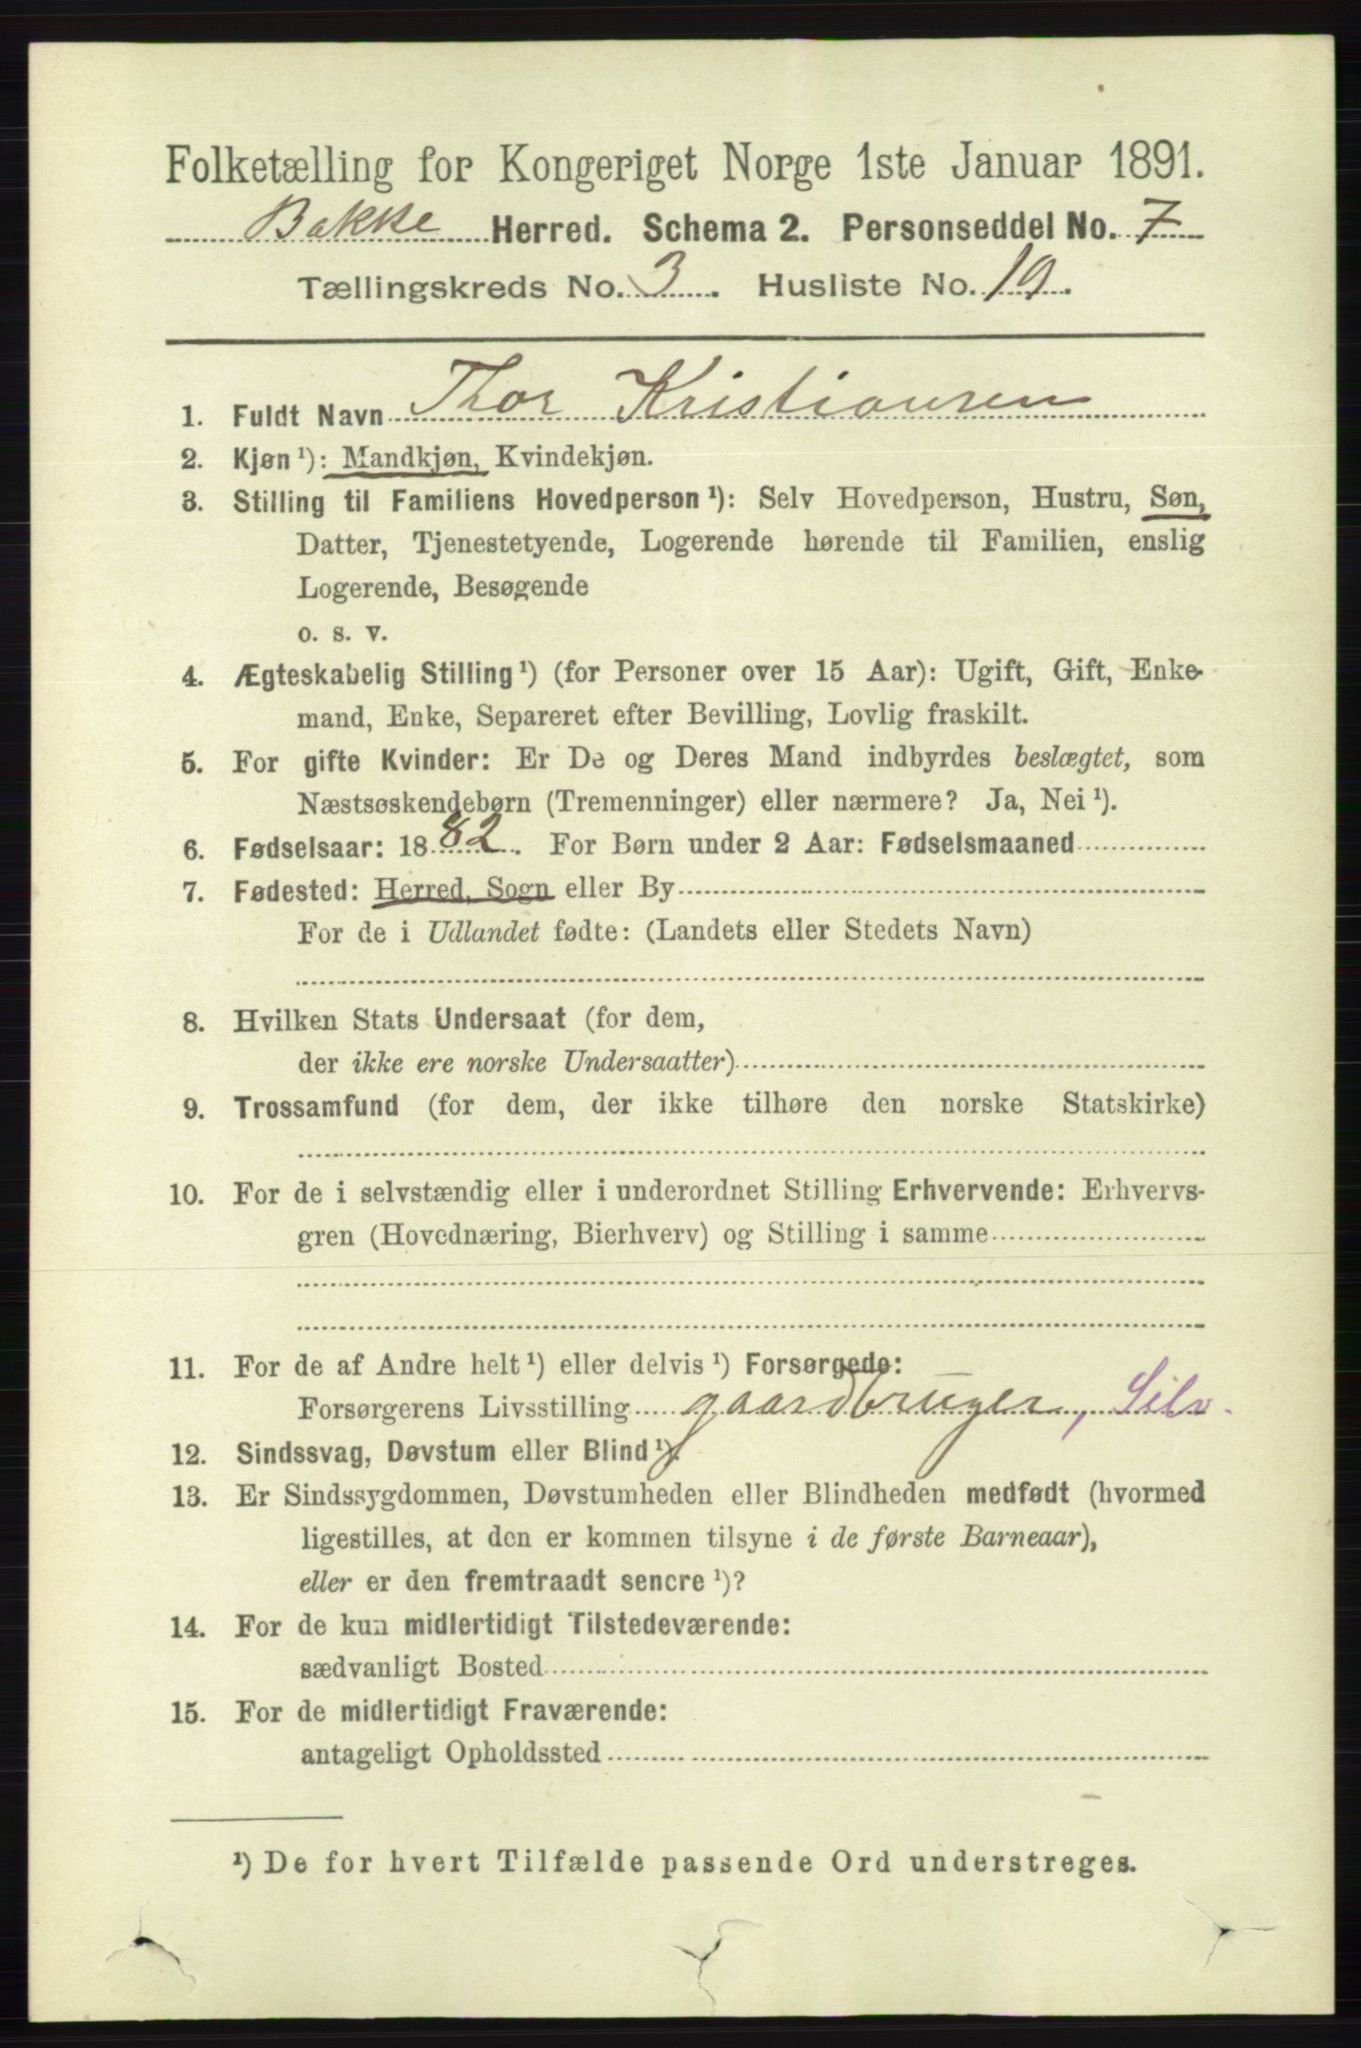 Folketælling for Kongeriget Norge 1ste Januar 1891.
Bakke Herred. Schema 2. Personseddel No. 7
Tællingskreds No. 3. Husliste No. 19.
1. Fuldt Navn Thor Kristiansen
2. Kjøn ¹): Mandkjøn, Kvindekjøn.
3. Stilling til Familiens Hovedperson ¹): Selv Hovedperson, Hustru, Søn,
Datter, Tjenestetyende, Logerende hørende til Familien, enslig
Logerende, Besøgende
o. s. v.
4. Ægteskabelig Stilling ¹) (for Personer over 15 Aar): Ugift, Gift, Enke-
mand, Enke, Separeret efter Bevilling, Lovlig fraskilt.
5. For gifte Kvinder: Er De og Deres Mand indbyrdes beslægtet, som
Næstsøskendebørn (Tremenninger) eller nærmere? Ja, Nei ¹).
6. Fødselsaar: 1882. For Børn under 2 Aar: Fødselsmaaned
7. Fødested: Herred, Sogn eller By
For de i Udlandet fødte: (Landets eller Stedets Navn)
8. Hvilken Stats Undersaat (for dem,
der ikke ere norske Undersaatter)
9. Trossamfund (for dem, der ikke tilhøre den norske Statskirke)
10. For de i selvstændig eller i underordnet Stilling Erhvervende: Erhvervs-
gren (Hovednæring, Bierhverv) og Stilling i samme
11. For de af Andre helt ¹) eller delvis ¹) Forsørgede:
Forsørgerens Livsstilling gaardbruger, Selv.
12. Sindssvag, Døvstum eller Blind ¹).
13. Er Sindssygdommen, Døvstumheden eller Blindheden medfødt (hvormed
ligestilles, at den er kommen tilsyne i de første Barneaar),
eller er den fremtraadt senere ¹)?
14. For de kun midlertidigt Tilstedeværende:
sædvanligt Bosted
15. For de midlertidigt Fraværende:
antageligt Opholdssted
¹) De for hvert Tilfælde passende Ord understreges.